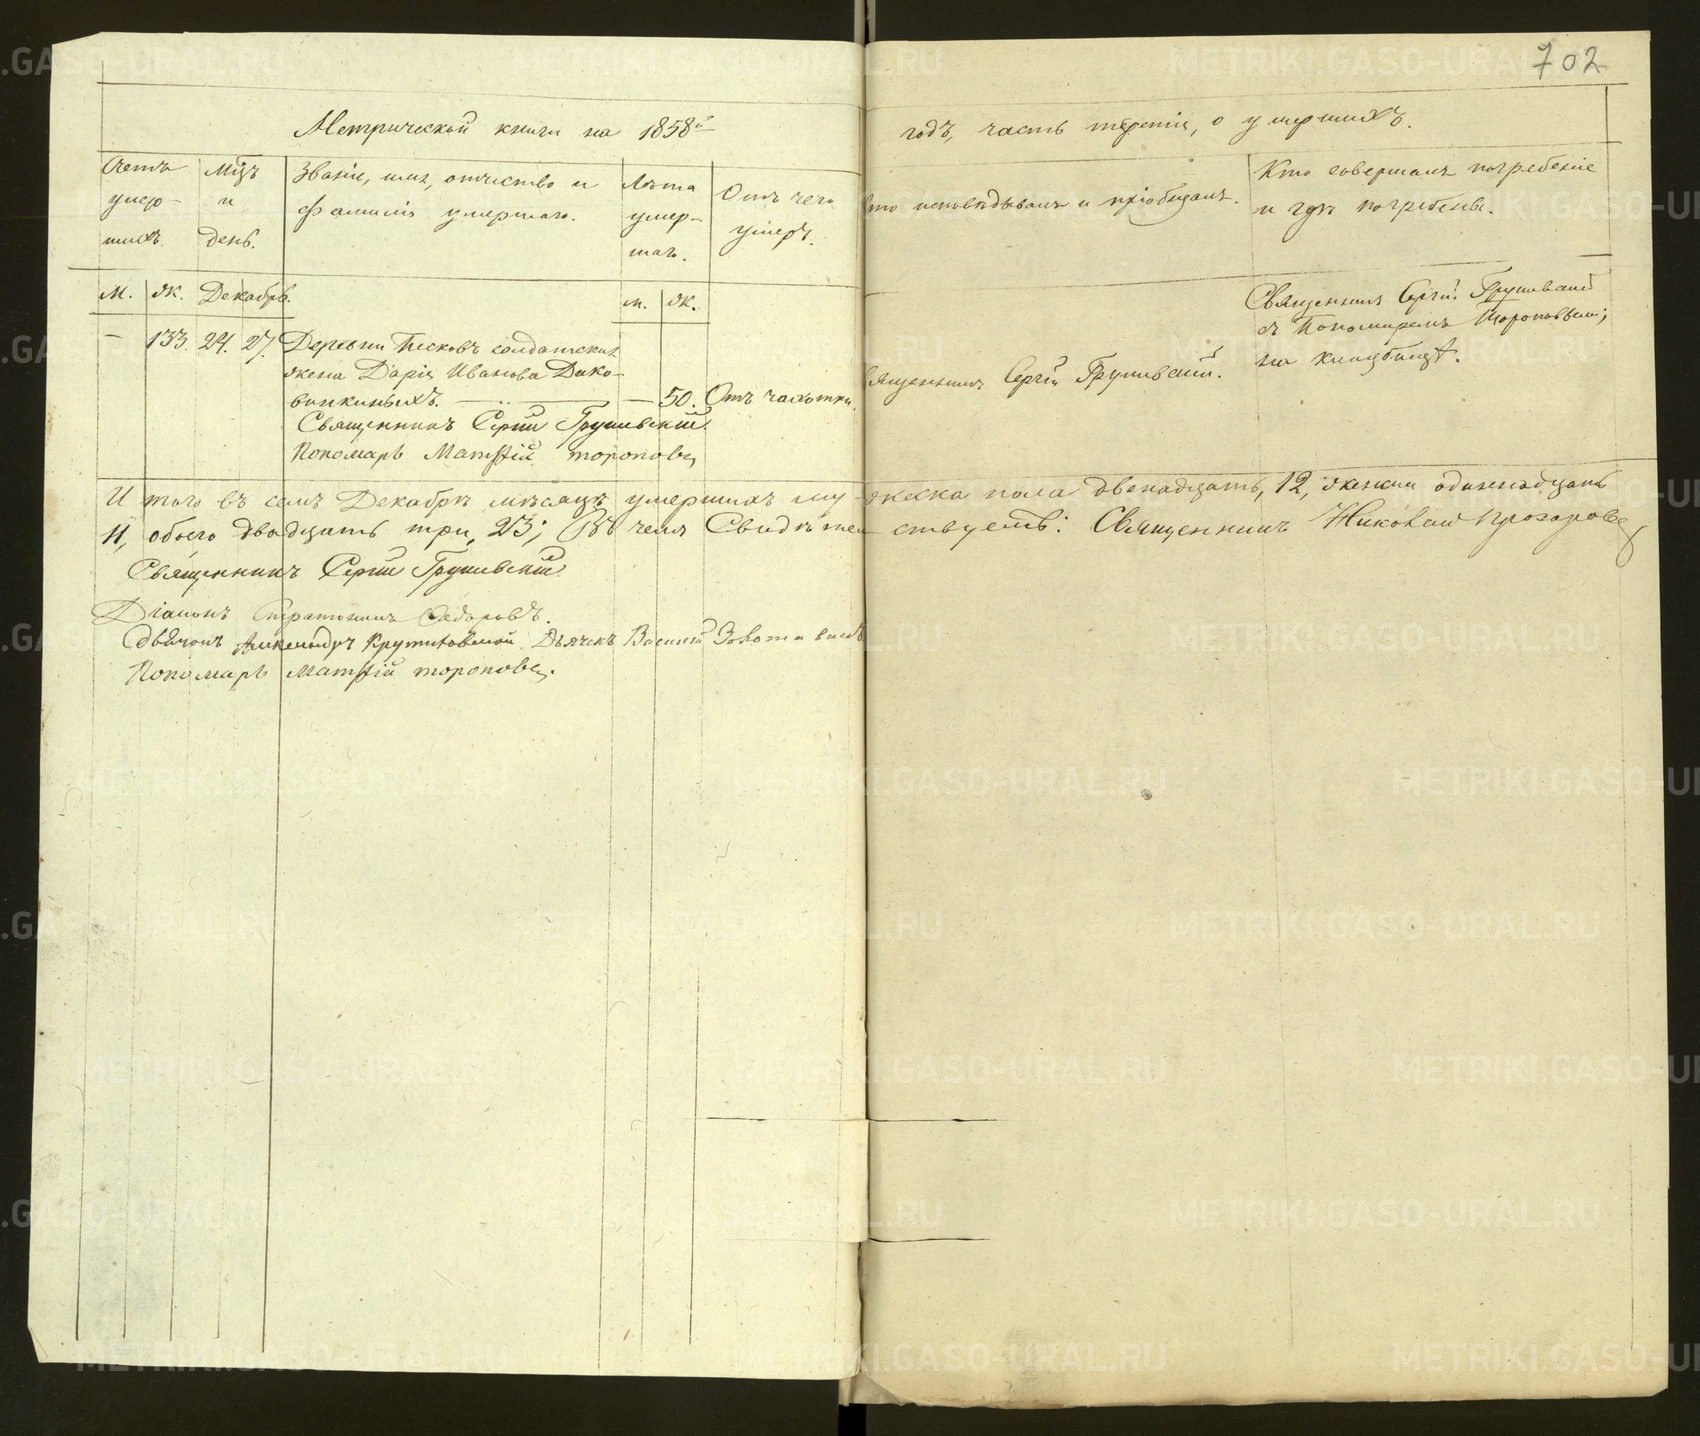 702
Метрической книги на 1858й годъ, часть третія, о умершихъ.
Счетъ умер-шихъ.
Мцъ и день.
Званіе, имя, отчество и фамилія умершаго.
Лѣта умер-шаго.
Отъ чего умеръ.
Кто исповѣдывалъ и пріобщалъ.
Кто совершалъ погребеніе и гдѣ погребены.
М. Ж. Декабрь. м. ж.
— 133. 24. 27. Деревни Песковъ солдатская
жена Дарія Иванова
— 50. Отъ чахотки.
Священникъ Сергій
Священникъ Сергій
съ Пономаремъ Тороповымъ;
на кладбищѣ.
Священникъ Сергій
Пономарь Матѳій Тороповъ
И того въ семъ Декабрѣ мѣсяцѣ умершихъ му-жеска пола двенадцать, 12, женска одиннадцать
11, обоего двадцать три, 23; Въ чемъ Свидѣтельствуемъ: Священникъ Николай Прозоровъ
Священникъ Сергій
Діаконъ
Александръ Дьячекъ Василій
Пономарь Матѳій Тороповъ.
METRIKI.GASO-URAL.RU